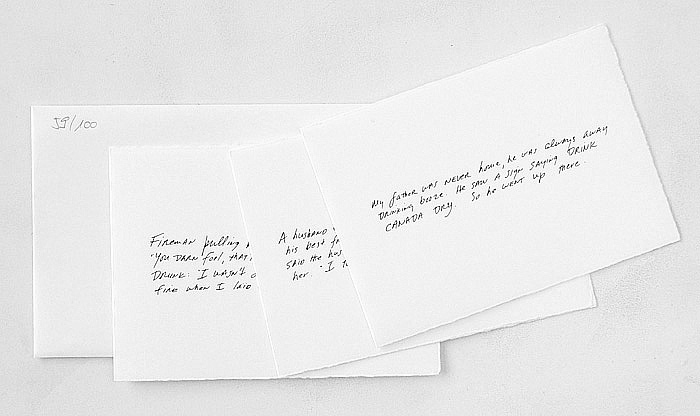 59/100
Fireman pulling
"You darn fool, that
Drunk: "I wasn't
fire when I laid
A husband
his best
said the hus
her. "I
My father was never home, he was always away
drinking booze. He saw a sign saying DRINK
CANADA DRY. So he went up there.